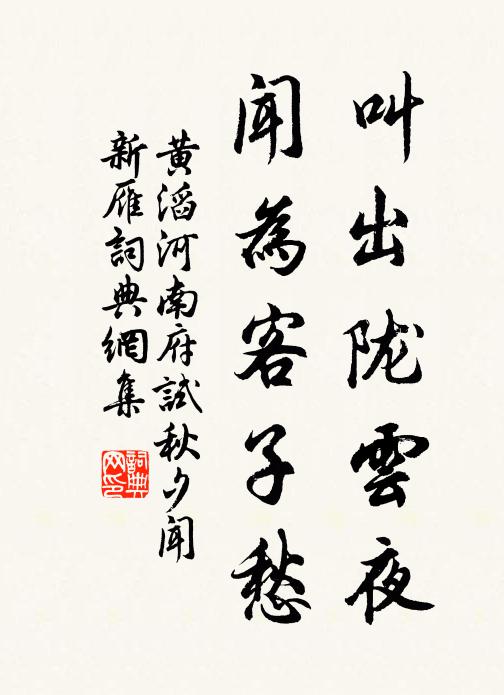 叫出陇雲夜
闻為客子愁
黄滔河南府試秋夕闻
新雁詞典網集
詞典网印